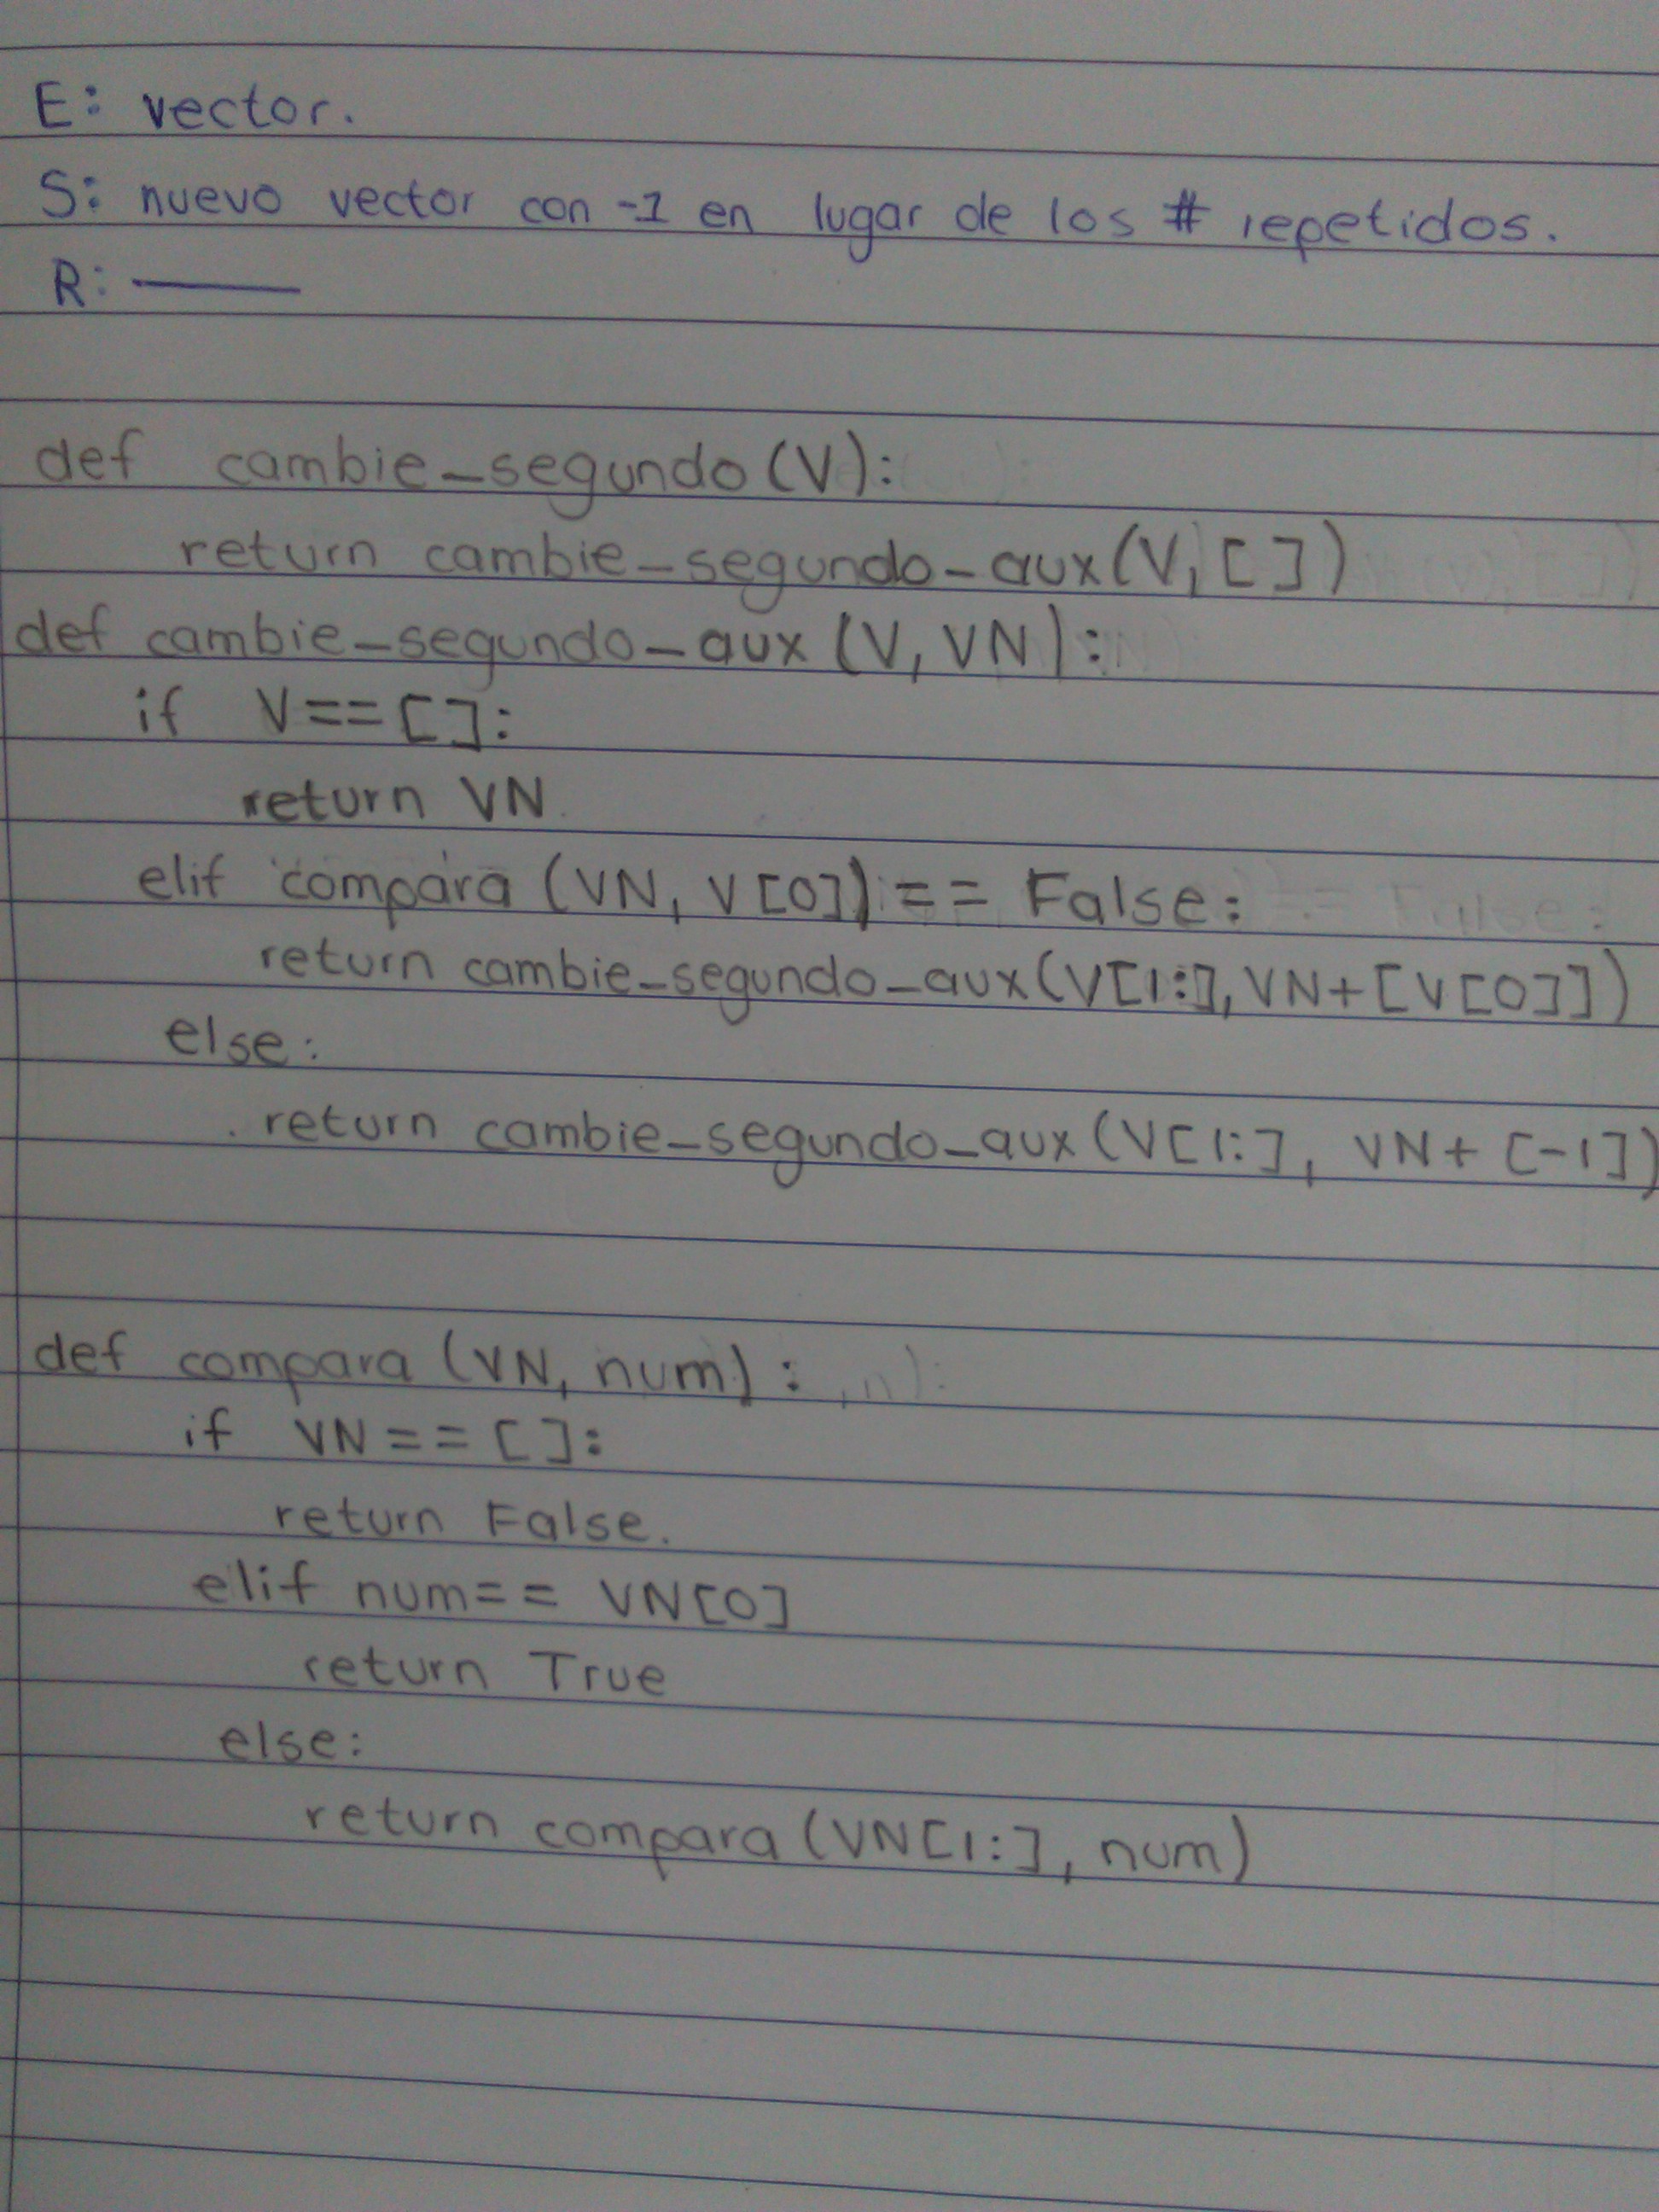 E: vector.
S: nuevo vector con -1 en lugar de los # repetidos.
R: ——
def cambie_segundo(V):
return cambie_segundo_aux(V,[])
def cambie_segundo_aux(V,VN):
if V==[]:
return VN
elif compara(VN,V[0])== False:
return cambie_segundo_aux(V[1:],VN+[V[0]])
else:
return cambie_segundo_aux(V[1:], VN+[-1])
def compara(VN, num):
if VN==[]:
return False.
elif num== VN[0]
return True
else:
return compara(VN[1:], num)